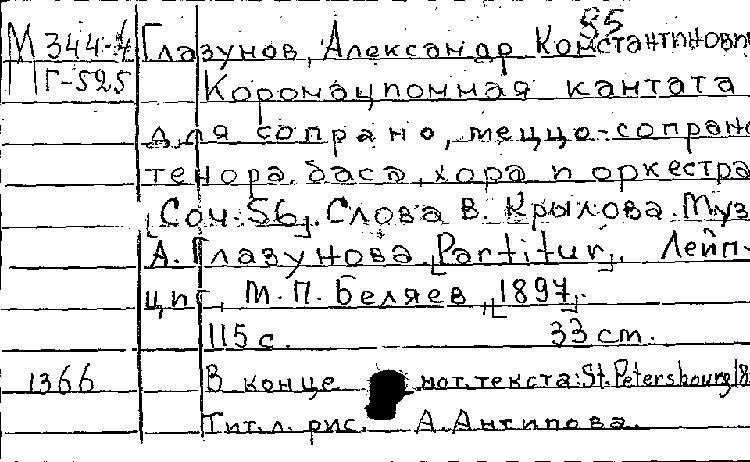 85
М 344-4 Глазунов, Александр Константинович
Г-525 Коронационная кантата
для сопрано, меццо-сопрано
тенора, баса, хора и оркестра
[Соч. 56]. Слова В. Крылова. Муз
А. Глазунова. [Partitur]. Лейп-
циг, М. П. Беляев, [1897].
115 с. 33 cm.
1366 В конце нот. текста: St. Petersbourg 18
Тит. л. рис. А. Антипова.